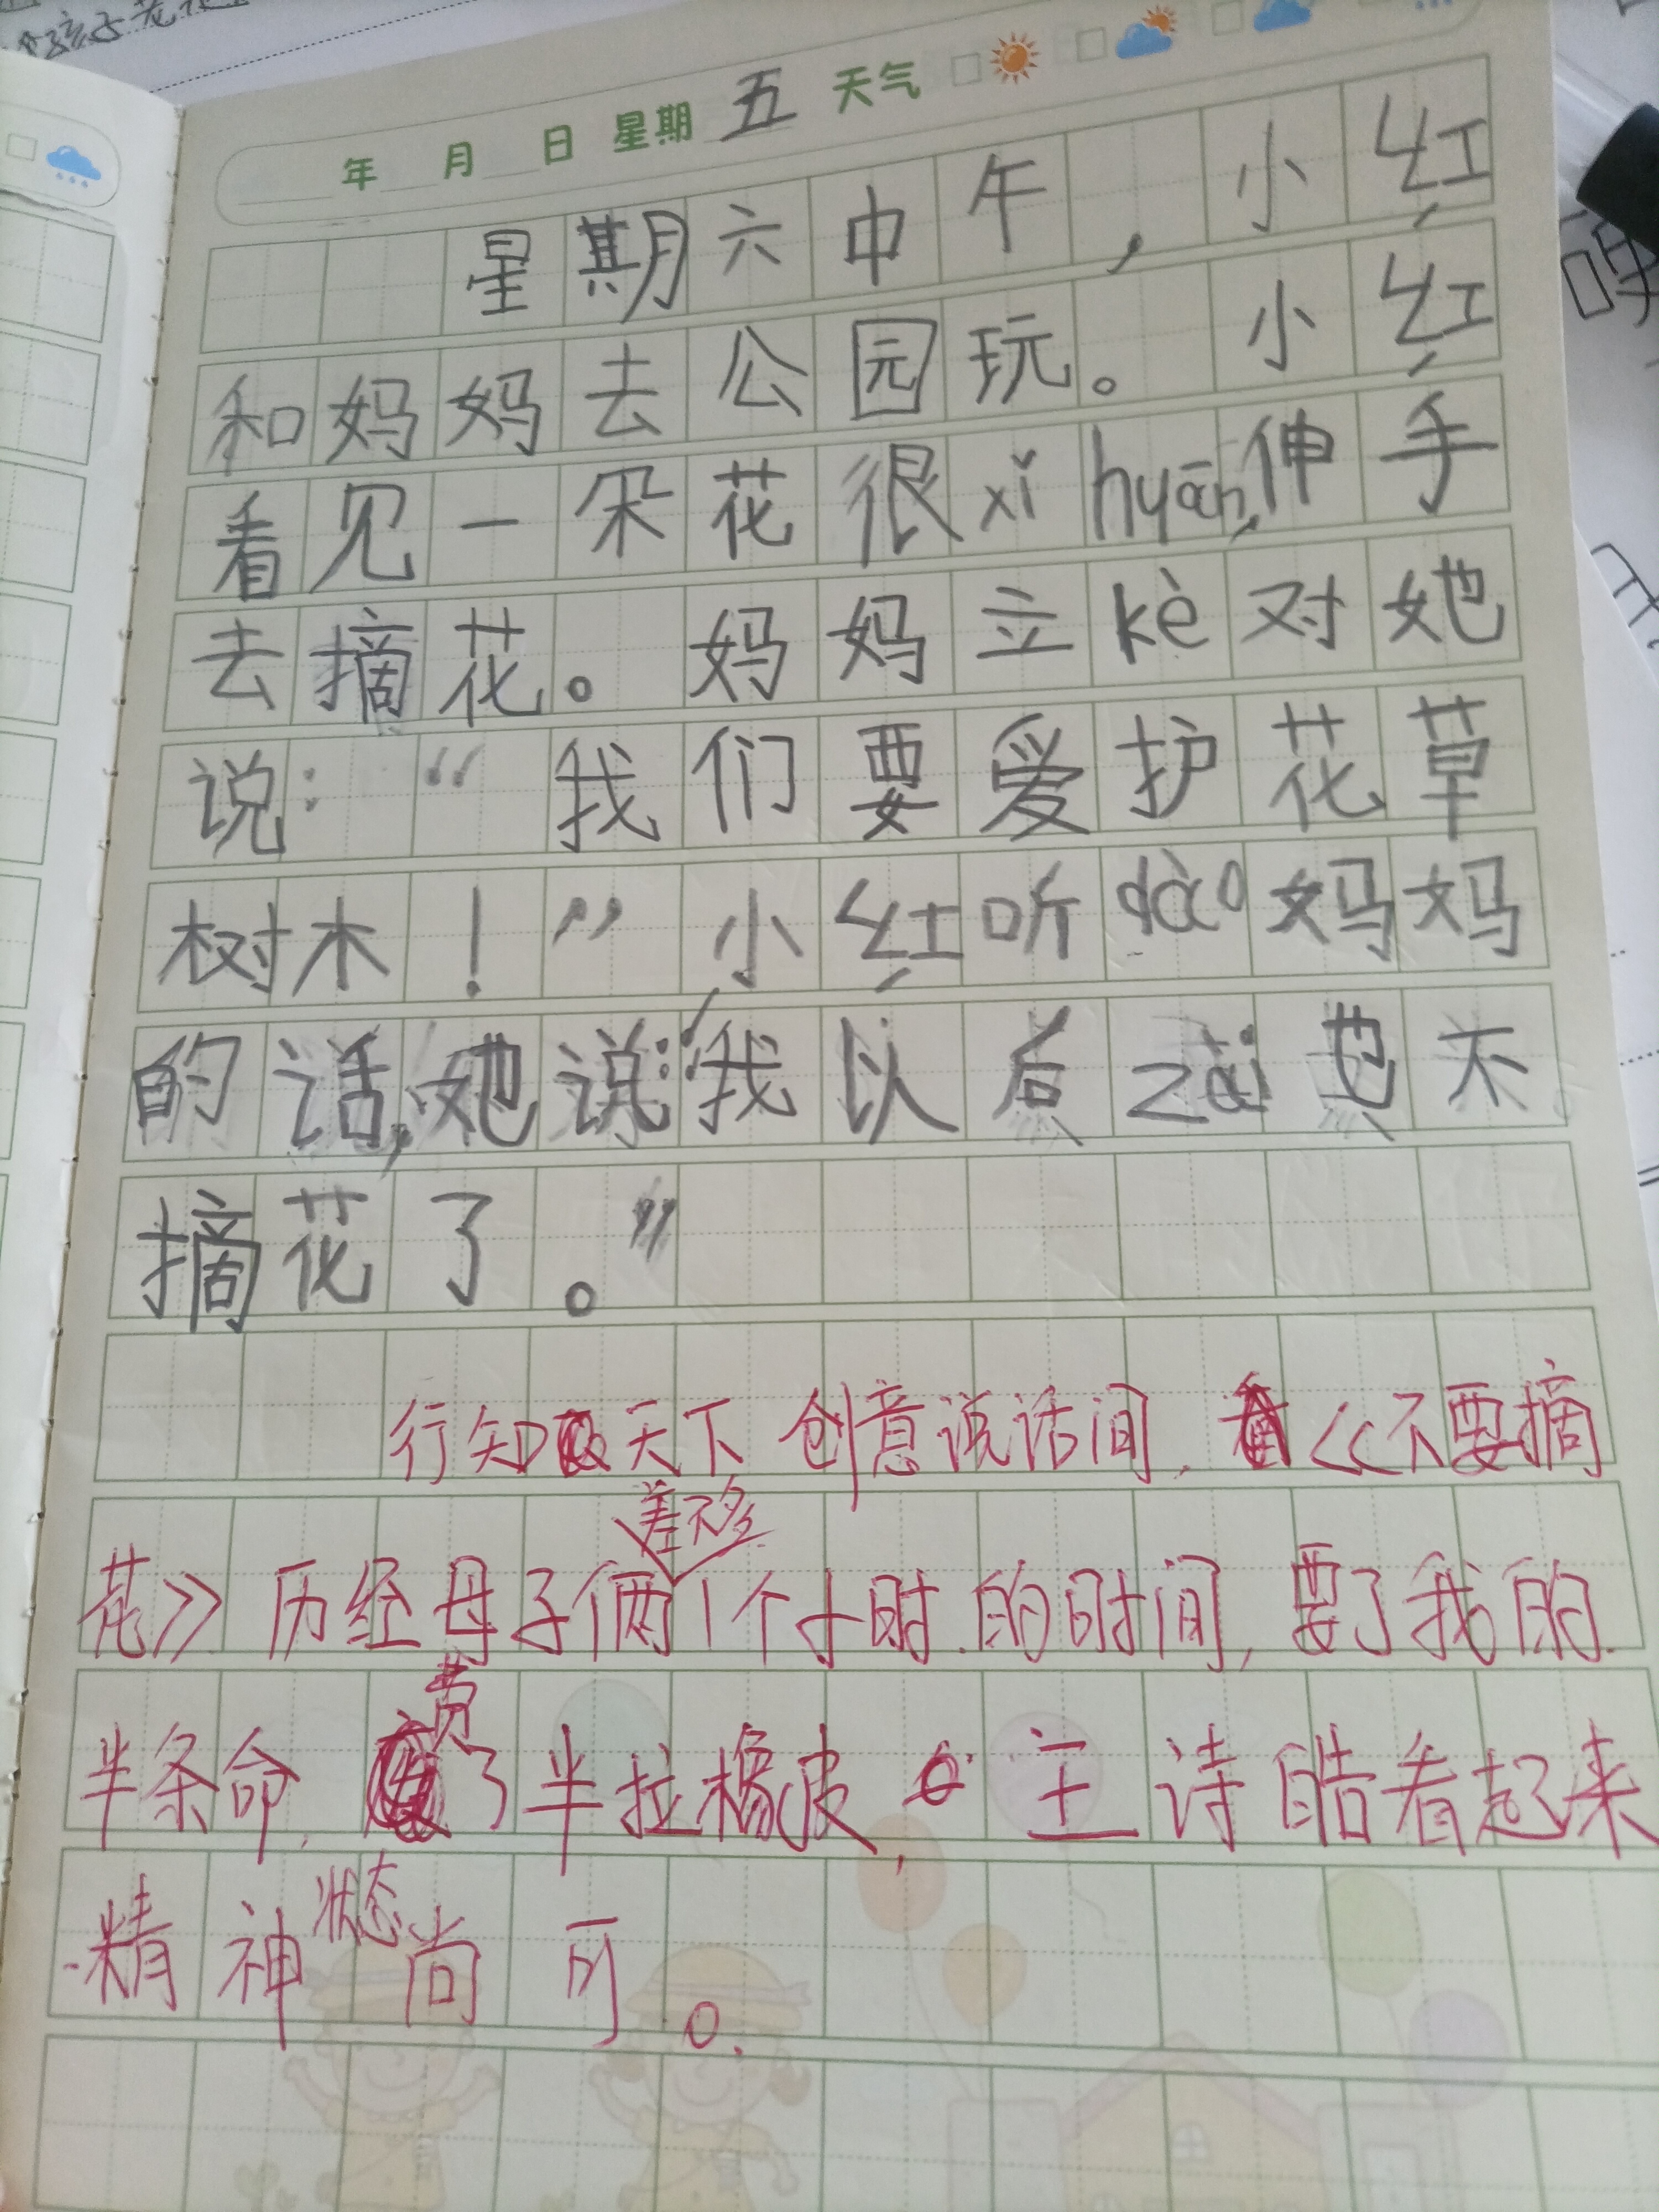 年 月 日 星期 五 天气
星期六中午，小红
和妈妈去公园玩。小红
看见一朵花很xǐ hyān，伸手
去摘花。妈妈立kè对她
说：“我们要爱护花草
树木！”小红听dào妈妈
的话，她说：“我以后zài也不
摘花了。”
行知天下创意说话间，《不要摘
花》历经母子俩差不多1个小时的时间，要了我的
半条命，费了半拉橡皮，主诗皓看起来
精神状态尚可。